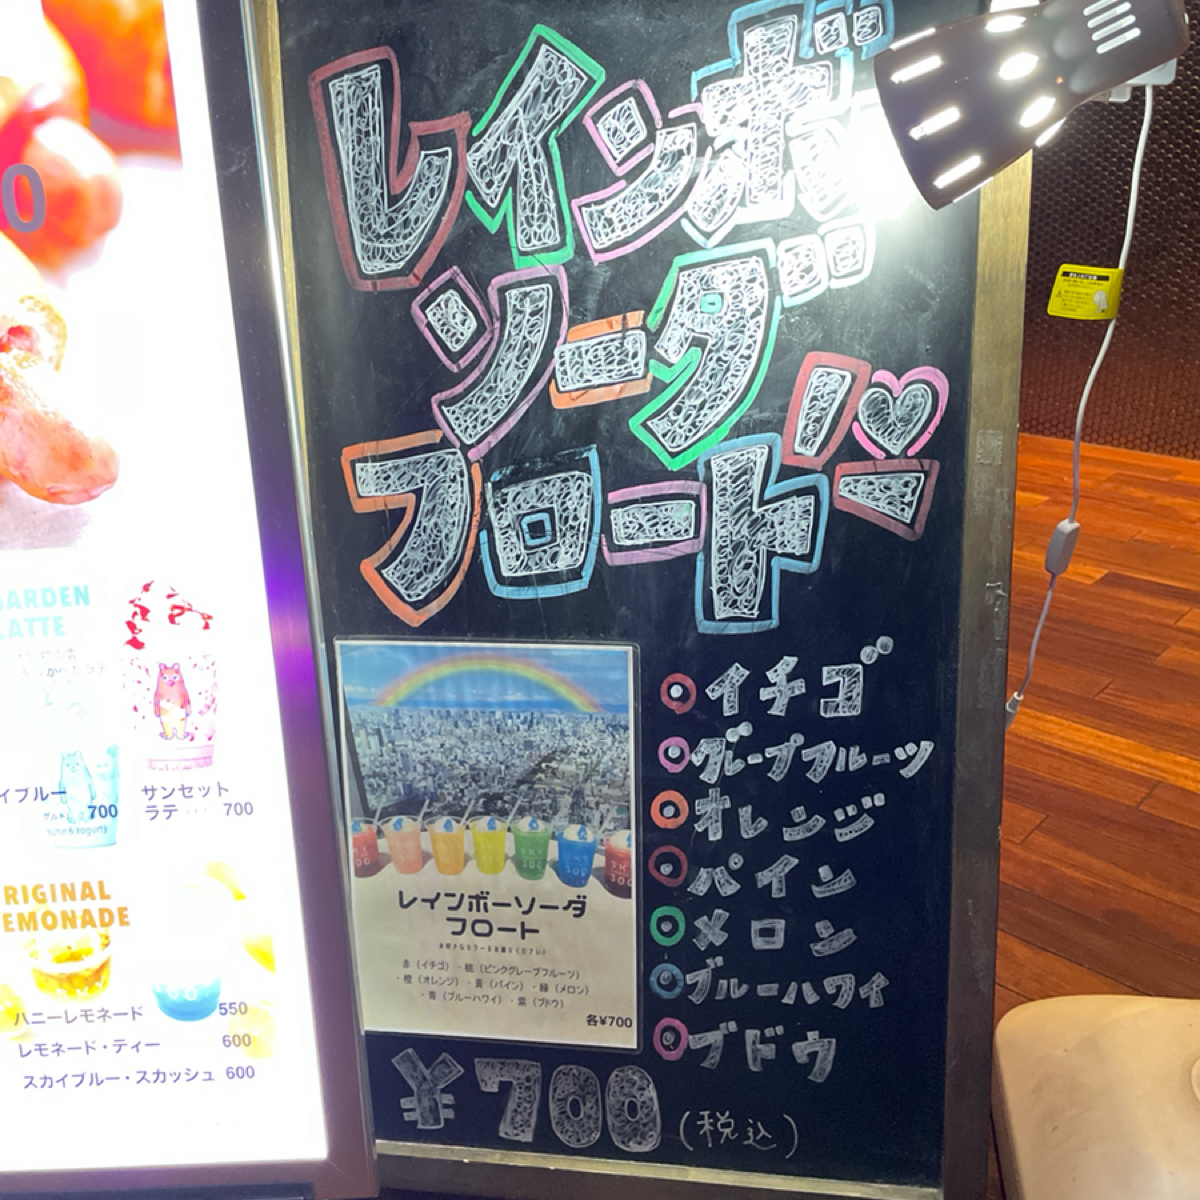 0
GARDEN
LATTE
イブルー
700
サンセット
ラテ … 700
ORIGINAL
LEMONADE
ハニーレモネード 550
レモネード・ティー 600
スカイブルー・スカッシュ 600
レインボー
ソーダ
フロート!!
レインボーソーダ
フロート
お好きなカラーをお選びください♪
・赤（イチゴ）・桃（ピンクグレープフルーツ）
・橙（オレンジ）・黄（パイン）・緑（メロン）
・青（ブルーハワイ）・紫（ブドウ）
各¥700
イチゴ
グレープフルーツ
オレンジ
パイン
メロン
ブルーハワイ
ブドウ
¥700 (税込)